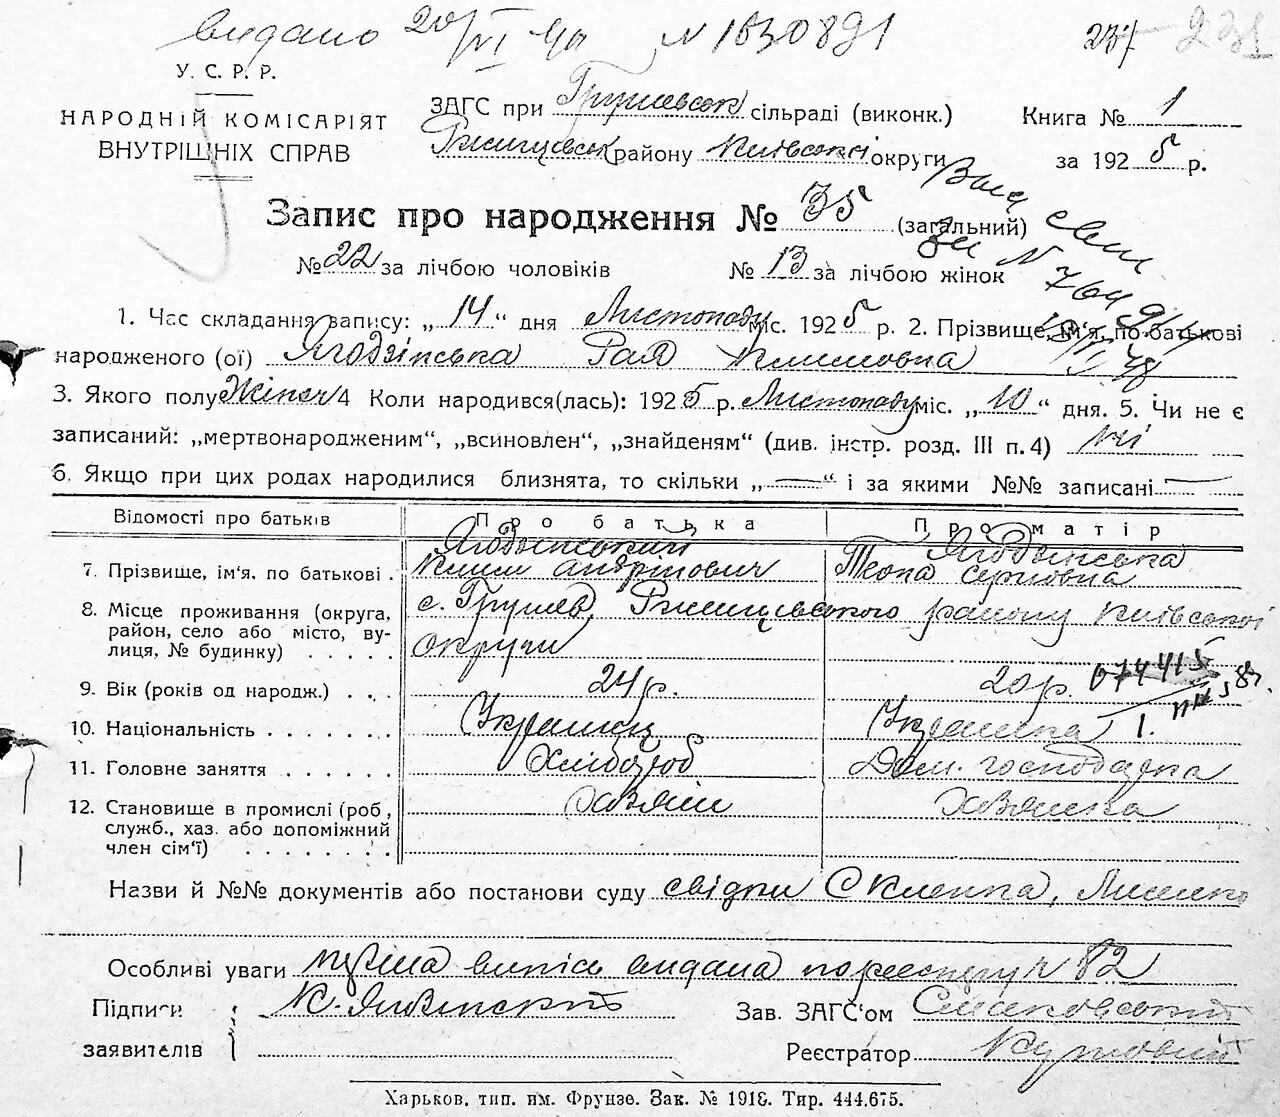 видано 20/VI 41 N 1630891 237 231
У. С. Р. Р.
НАРОДНІЙ КОМІСАРІЯТ
ВНУТРІШНІХ СПРАВ
ЗАГС при Грушевськ сільраді (виконк.)
Ржищевськ району Київської округи
Книга № 1
за 1925 р.
Запис про народження № 35 (загальний)
№ 22 за лічбою чоловіків № 13 за лічбою жінок
1. Час складання запису: „ 14 “ дня Листопаду міс. 1925 р. 2. Прізвище, ім'я, по батькові
народженого (ої) Ягодзінська Рая Климовна
3. Якого полу Жіноч 4 Коли народився(лась): 1925 р. Листопаду міс. „ 10 “ дня. 5. Чи не є
записаний: „мертвонародженим“, „всиновлен“, „знайденям“ (див. інстр. розд. III п. 4) ні
6. Якщо при цих родах народилися близнята, то скільки „ — “ і за якими №№ записані —
Відомості про батьків Про батька Про матір
7. Прізвище, ім'я, по батькові . Ягодзінський Клим Андрійович Ягодзінська Текла Сергіовна
8. Місце проживання (округа, район, село або місто, вулиця, № будинку) . . . . . с. Грушев, Ржищевського району Київської округи
9. Вік (років од народж.) . . . 24 р. 20 р.
10. Національність . . . . . . . Українець Українка
11. Головне заняття . . . . . . Хлібороб Дом. господарка
12. Становище в промислі (роб, служб., хаз. або допоміжний член сім'ї) . . . . . . . . Хазяїн Хазяйка
Назви й №№ документів або постанови суду свідки
Особливі уваги перша випись видана по реєстру № 82
Підписи заявителів К. Ягодзинский
Зав. ЗАГС'ом
Реєстратор
Харьков, тип. им. Фрунзе. Зак. № 1918. Тир. 444.675.